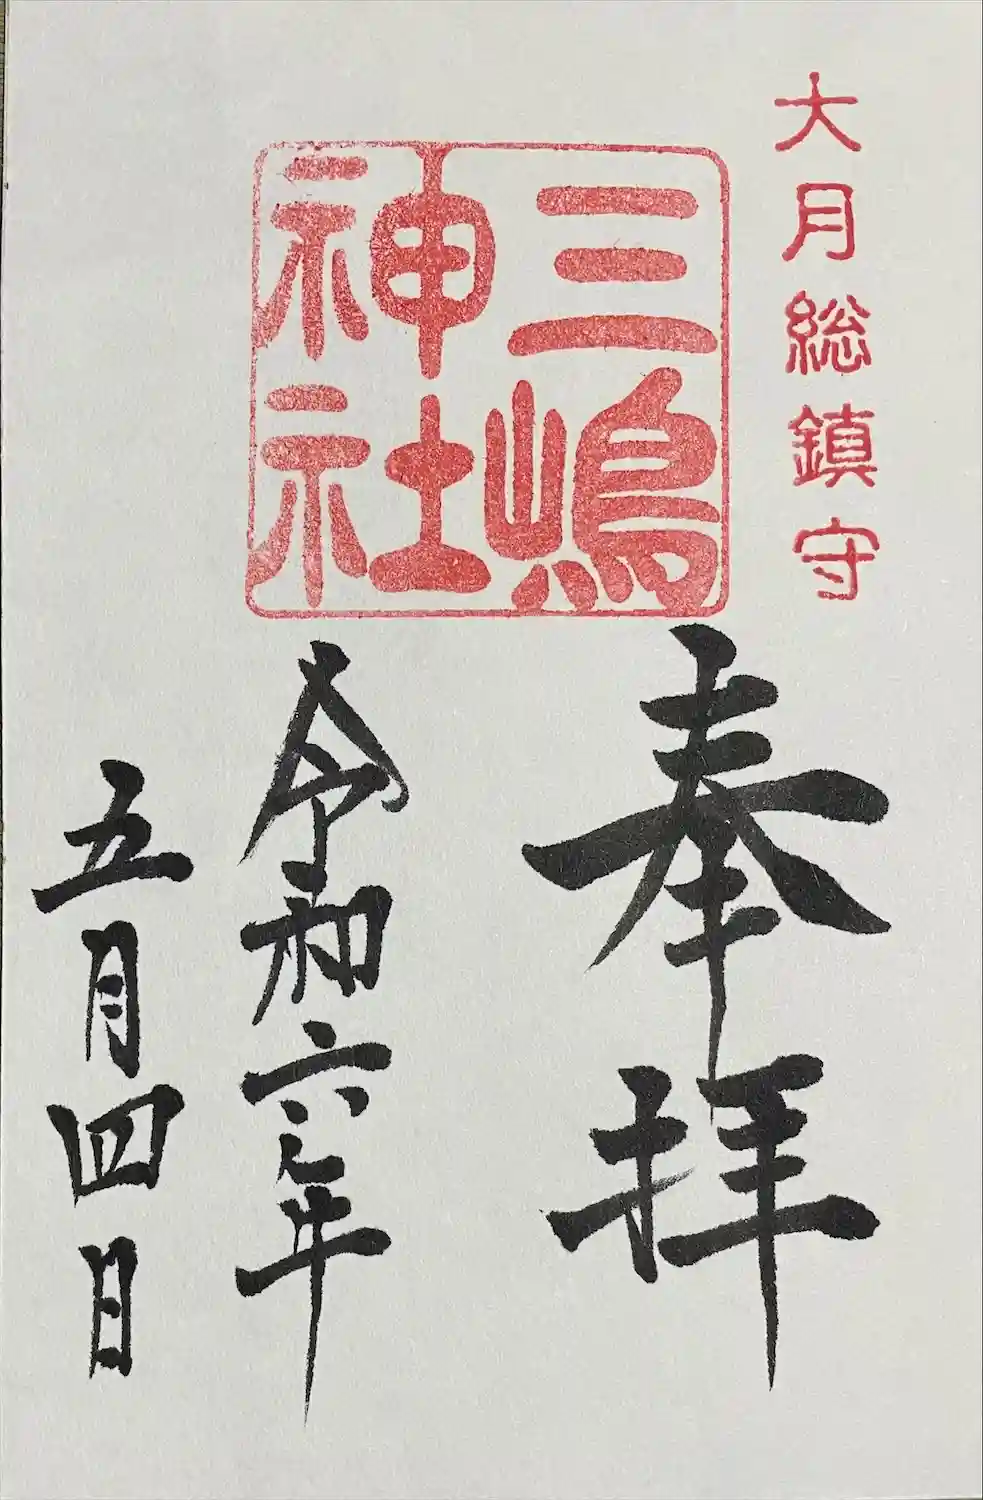 大月総鎮守
三嶋
神社
奉拝
令和六年
五月四日